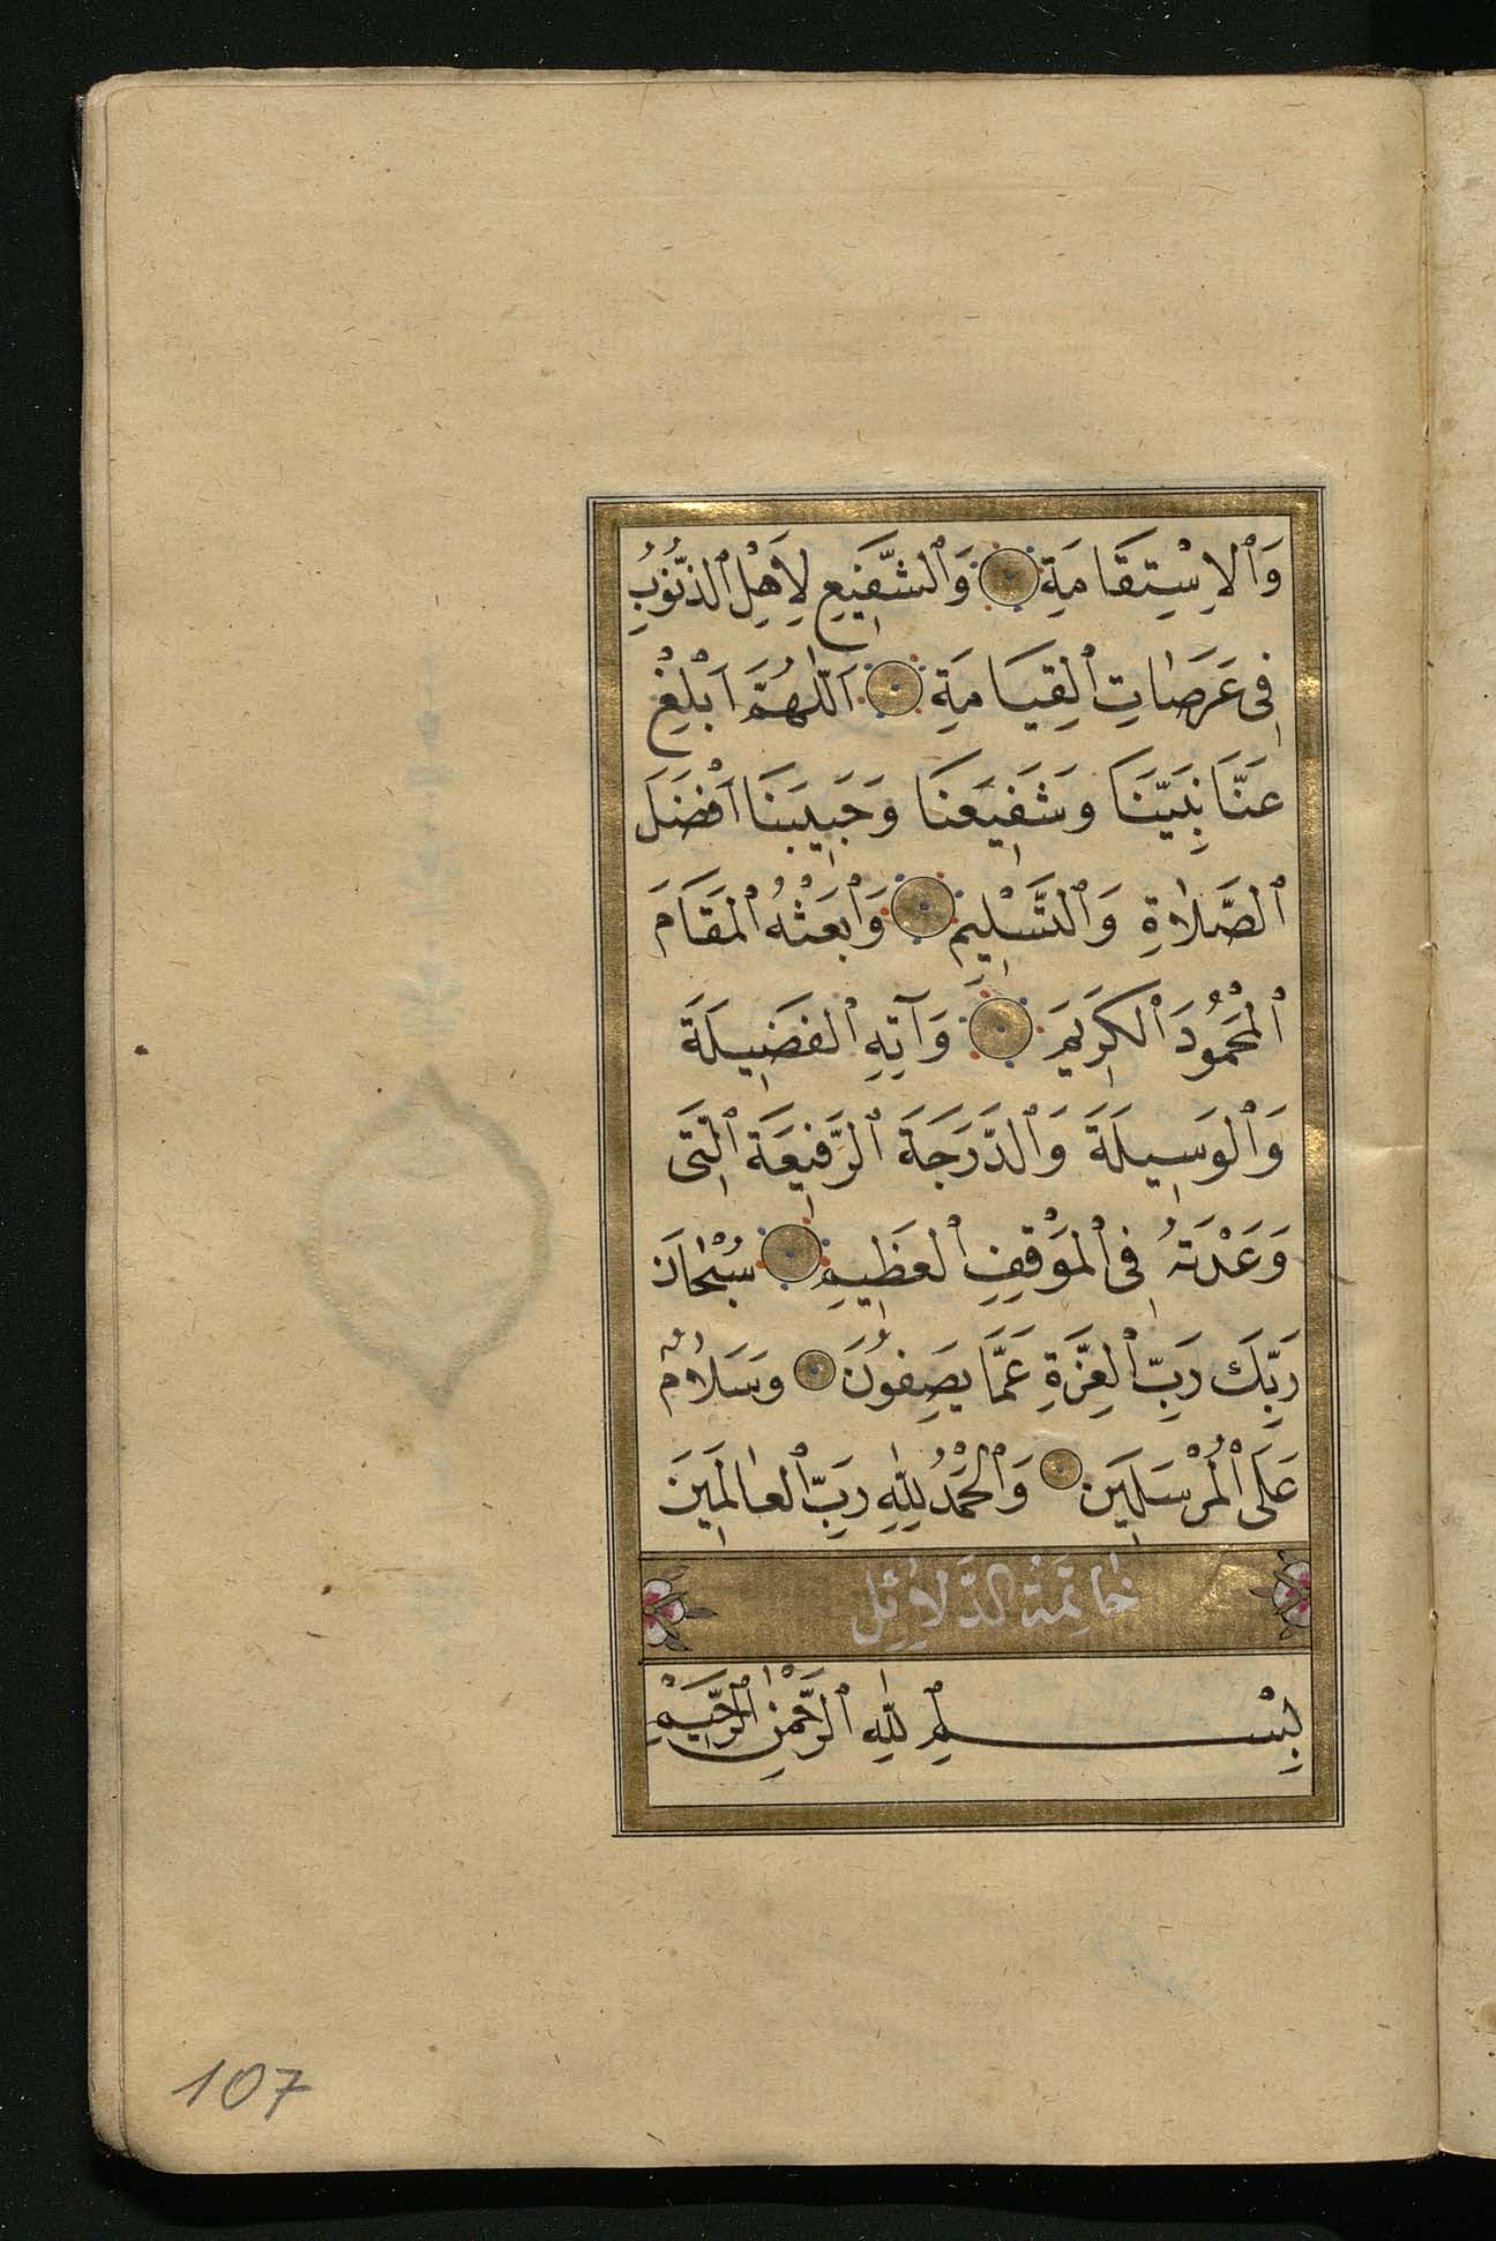 وَٱلاِسْتِقَامَةِ وَٱلشَّفِيعِ لِاَهْلِ ٱلذُّنُوُبِ
فِى عَرَصَاتِ ٱلقِيَامَةِ اَللّٰهُمَّ اَبْلِغْ
عَنَّا نَبِيَّنَا وَشَفِيعَنَا وَحَبِيبَنَا اَفْضَلَ
ٱلصَّلاٰةِ وَٱلتَّسْلِيمِ وَٱبْعَثْهُ ٱلمَقَامَ
ٱلْمَحْمُودَ ٱلكَرِيمَ وَآتِهِ ٱلفَضِيلَةَ
وَٱلوَسِيلَةَ وَٱلدَّرَجَةَ ٱلرَّفِيعَةَ ٱلَّتِى
وَعَدْتَهُ فِى ٱلمَوْقِفِ ٱلعَظِيمِ سُبْحَانَ
رَبِّكَ رَبِّ ٱلعِزَّةِ عَمَّا يَصِفُونَ وَسَلاٰمٌ
عَلَى ٱلْمُرْسَلِينَ وَٱلْحَمْدُ لِلّٰهِ رَبِّ ٱلعَالَمِينَ
خَاتِمَةُ الدَّلاَئِلِ
بِسْمِ ٱللّٰهِ ٱلرَّحْمٰنِ ٱلرَّحِيمِ
107